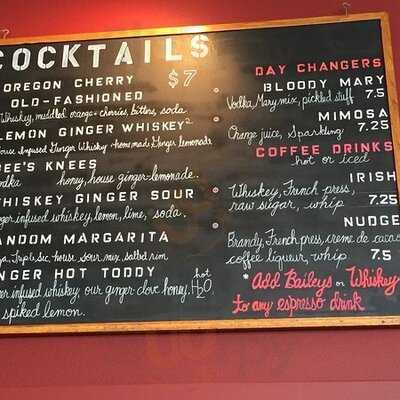 COCKTAILS
$7
OREGON CHERRY
OLD-FASHIONED
Whiskey, muddled orange + cherries, bitters, soda
LEMON GINGER WHISKEY²
House Infused Ginger Whiskey + homemade Ginger lemonade
BEE'S KNEES
honey, house ginger-lemonade.
WHISKEY GINGER SOUR
infused whiskey, lemon, lime, soda.
MARGARITA
Triple sec, house sour mix, salted rim
GINGER HOT TODDY
infused whiskey, our ginger-clove honey, hot H₂O,
spiked lemon.
DAY CHANGERS
BLOODY MARY
Vodka, Mary mix, pickled stuff 7.5
MIMOSA
Orange juice, Sparkling 7.25
COFFEE DRINKS
hot or iced
IRISH
Whiskey, French press,
raw sugar, whip 7.25
NUDGE
Brandy, French press, creme de cacao
coffee liqueur, whip 7.5
* Add Baileys or Whiskey
to any espresso drink